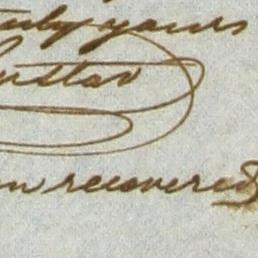 truly yours
Gustav
recovered